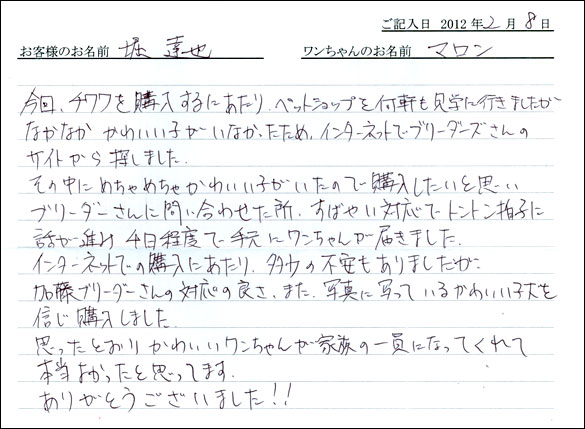 ご記入日 2012年2月8日
お客様のお名前 堀 達也 ワンちゃんのお名前 マロン
今回、チワワを購入するにあたり、ペットショップを何軒も見学に行きましたが
なかなか かわいい子がいなかったため、インターネットでブリーダーズさんの
サイトから探しました。
その中にめちゃめちゃかわいい子がいたので購入したいと思い
ブリーダーさんに問い合わせた所、すばやい対応でトントン拍子に
話が進み 4日程度で手元にワンちゃんが届きました。
インターネットでの購入にあたり、多少の不安もありましたが、
加藤ブリーダーさんの対応の良さ、また、写真に写っているかわいい子犬を
信じ購入しました。
思ったとおり かわいいワンちゃんが家族の一員になってくれて
本当よかったと思ってます。
ありがとうございました!!